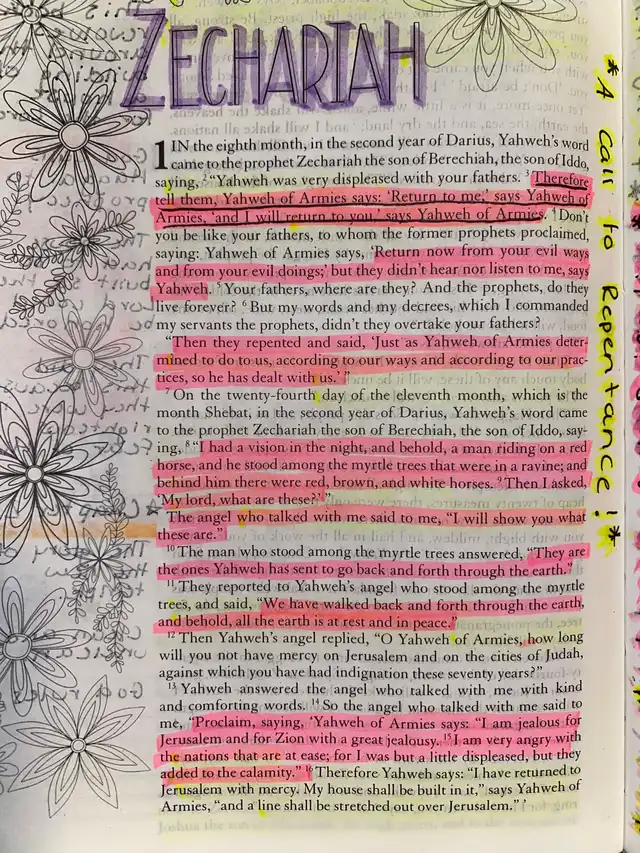 ZECHARIAH
1 IN the eighth month, in the second year of Darius, Yahweh's word
came to the prophet Zechariah the son of Berechiah, the son of Iddo,
saying, 2 “Yahweh was very displeased with your fathers. 3 Therefore
tell them, Yahweh of Armies says: ‘Return to me,’ says Yahweh of
Armies, ‘and I will return to you,’ says Yahweh of Armies. 4 Don't
you be like your fathers, to whom the former prophets proclaimed,
saying: Yahweh of Armies says, ‘Return now from your evil ways
and from your evil doings;’ but they didn't hear nor listen to me, says
Yahweh. 5 Your fathers, where are they? And the prophets, do they
live forever? 6 But my words and my decrees, which I commanded
my servants the prophets, didn't they overtake your fathers?
“Then they repented and said, ‘Just as Yahweh of Armies deter-
mined to do to us, according to our ways and according to our prac-
tices, so he has dealt with us.’ ”
7 On the twenty-fourth day of the eleventh month, which is the
month Shebat, in the second year of Darius, Yahweh's word came
to the prophet Zechariah the son of Berechiah, the son of Iddo, say-
ing, 8 “I had a vision in the night, and behold, a man riding on a red
horse, and he stood among the myrtle trees that were in a ravine; and
behind him there were red, brown, and white horses. 9 Then I asked,
‘My lord, what are these?’ ”
The angel who talked with me said to me, “I will show you what
these are.”
10 The man who stood among the myrtle trees answered, “They are
the ones Yahweh has sent to go back and forth through the earth.”
11 They reported to Yahweh's angel who stood among the myrtle
trees, and said, “We have walked back and forth through the earth,
and behold, all the earth is at rest and in peace.”
12 Then Yahweh's angel replied, “O Yahweh of Armies, how long
will you not have mercy on Jerusalem and on the cities of Judah,
against which you have had indignation these seventy years?”
13 Yahweh answered the angel who talked with me with kind
and comforting words. 14 So the angel who talked with me said to
me, “Proclaim, saying, ‘Yahweh of Armies says: “I am jealous for
Jerusalem and for Zion with a great jealousy. 15 I am very angry with
the nations that are at ease; for I was but a little displeased, but they
added to the calamity.” 16 Therefore Yahweh says: “I have returned to
Jerusalem with mercy. My house shall be built in it,” says Yahweh of
Armies, “and a line shall be stretched out over Jerusalem.” ’
* A call to Repentance! *